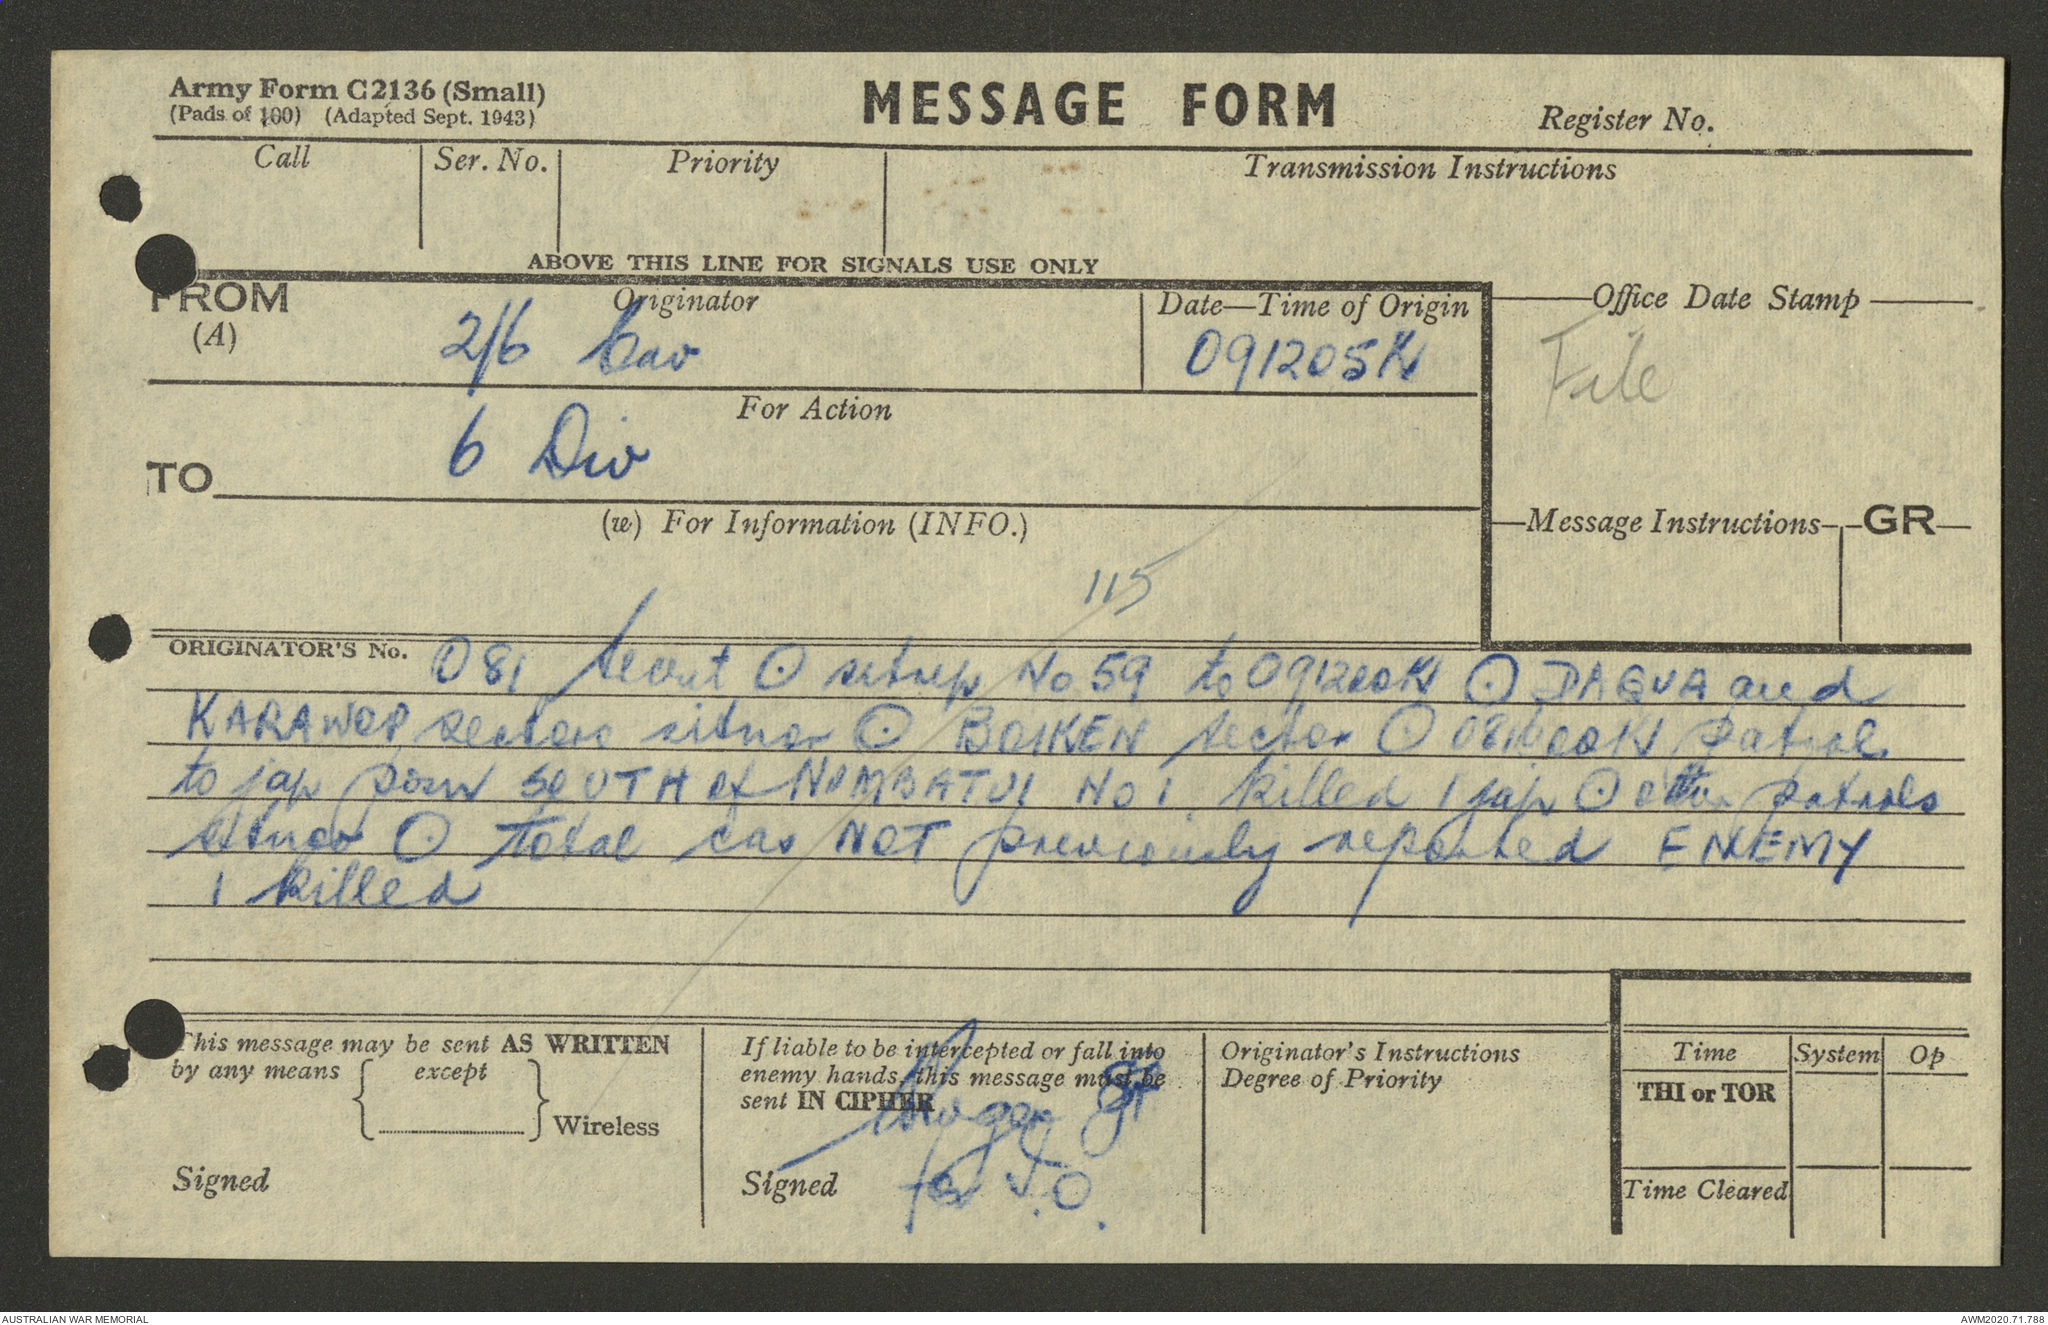 Army Form C2136 (Small)
(Pads of 100) (Adapted Sept. 1943)
MESSAGE FORM
Register No.
Call
Ser. No.
Priority
Transmission Instructions
ABOVE THIS LINE FOR SIGNALS USE ONLY
FROM
(A)
Originator
2/6 Cav
Date—Time of Origin
091205K
Office Date Stamp
File
For Action
6 Div
TO
(w) For Information (INFO.)
Message Instructions
GR
115
ORIGINATOR'S No.
O81 secret ⊙ sitrep No 59 to 091200K ⊙ DAGUA and
KARAWOP sectors sitnor ⊙ BOIKEN sector ⊙ patrol
to jap posn SOUTH of NUMBATUI No 1 killed 1 jap ⊙ other patrols
sitnor ⊙ Total cas NOT previously reported ENEMY
1 killed
This message may be sent AS WRITTEN
by any means except
Wireless
Signed
If liable to be intercepted or fall into
enemy hands, this message must be
sent IN CIPHER
Signed
for I.O.
Originator's Instructions
Degree of Priority
Time
System
Op
THI or TOR
Time Cleared
AUSTRALIAN WAR MEMORIAL
AWM2020.71.788